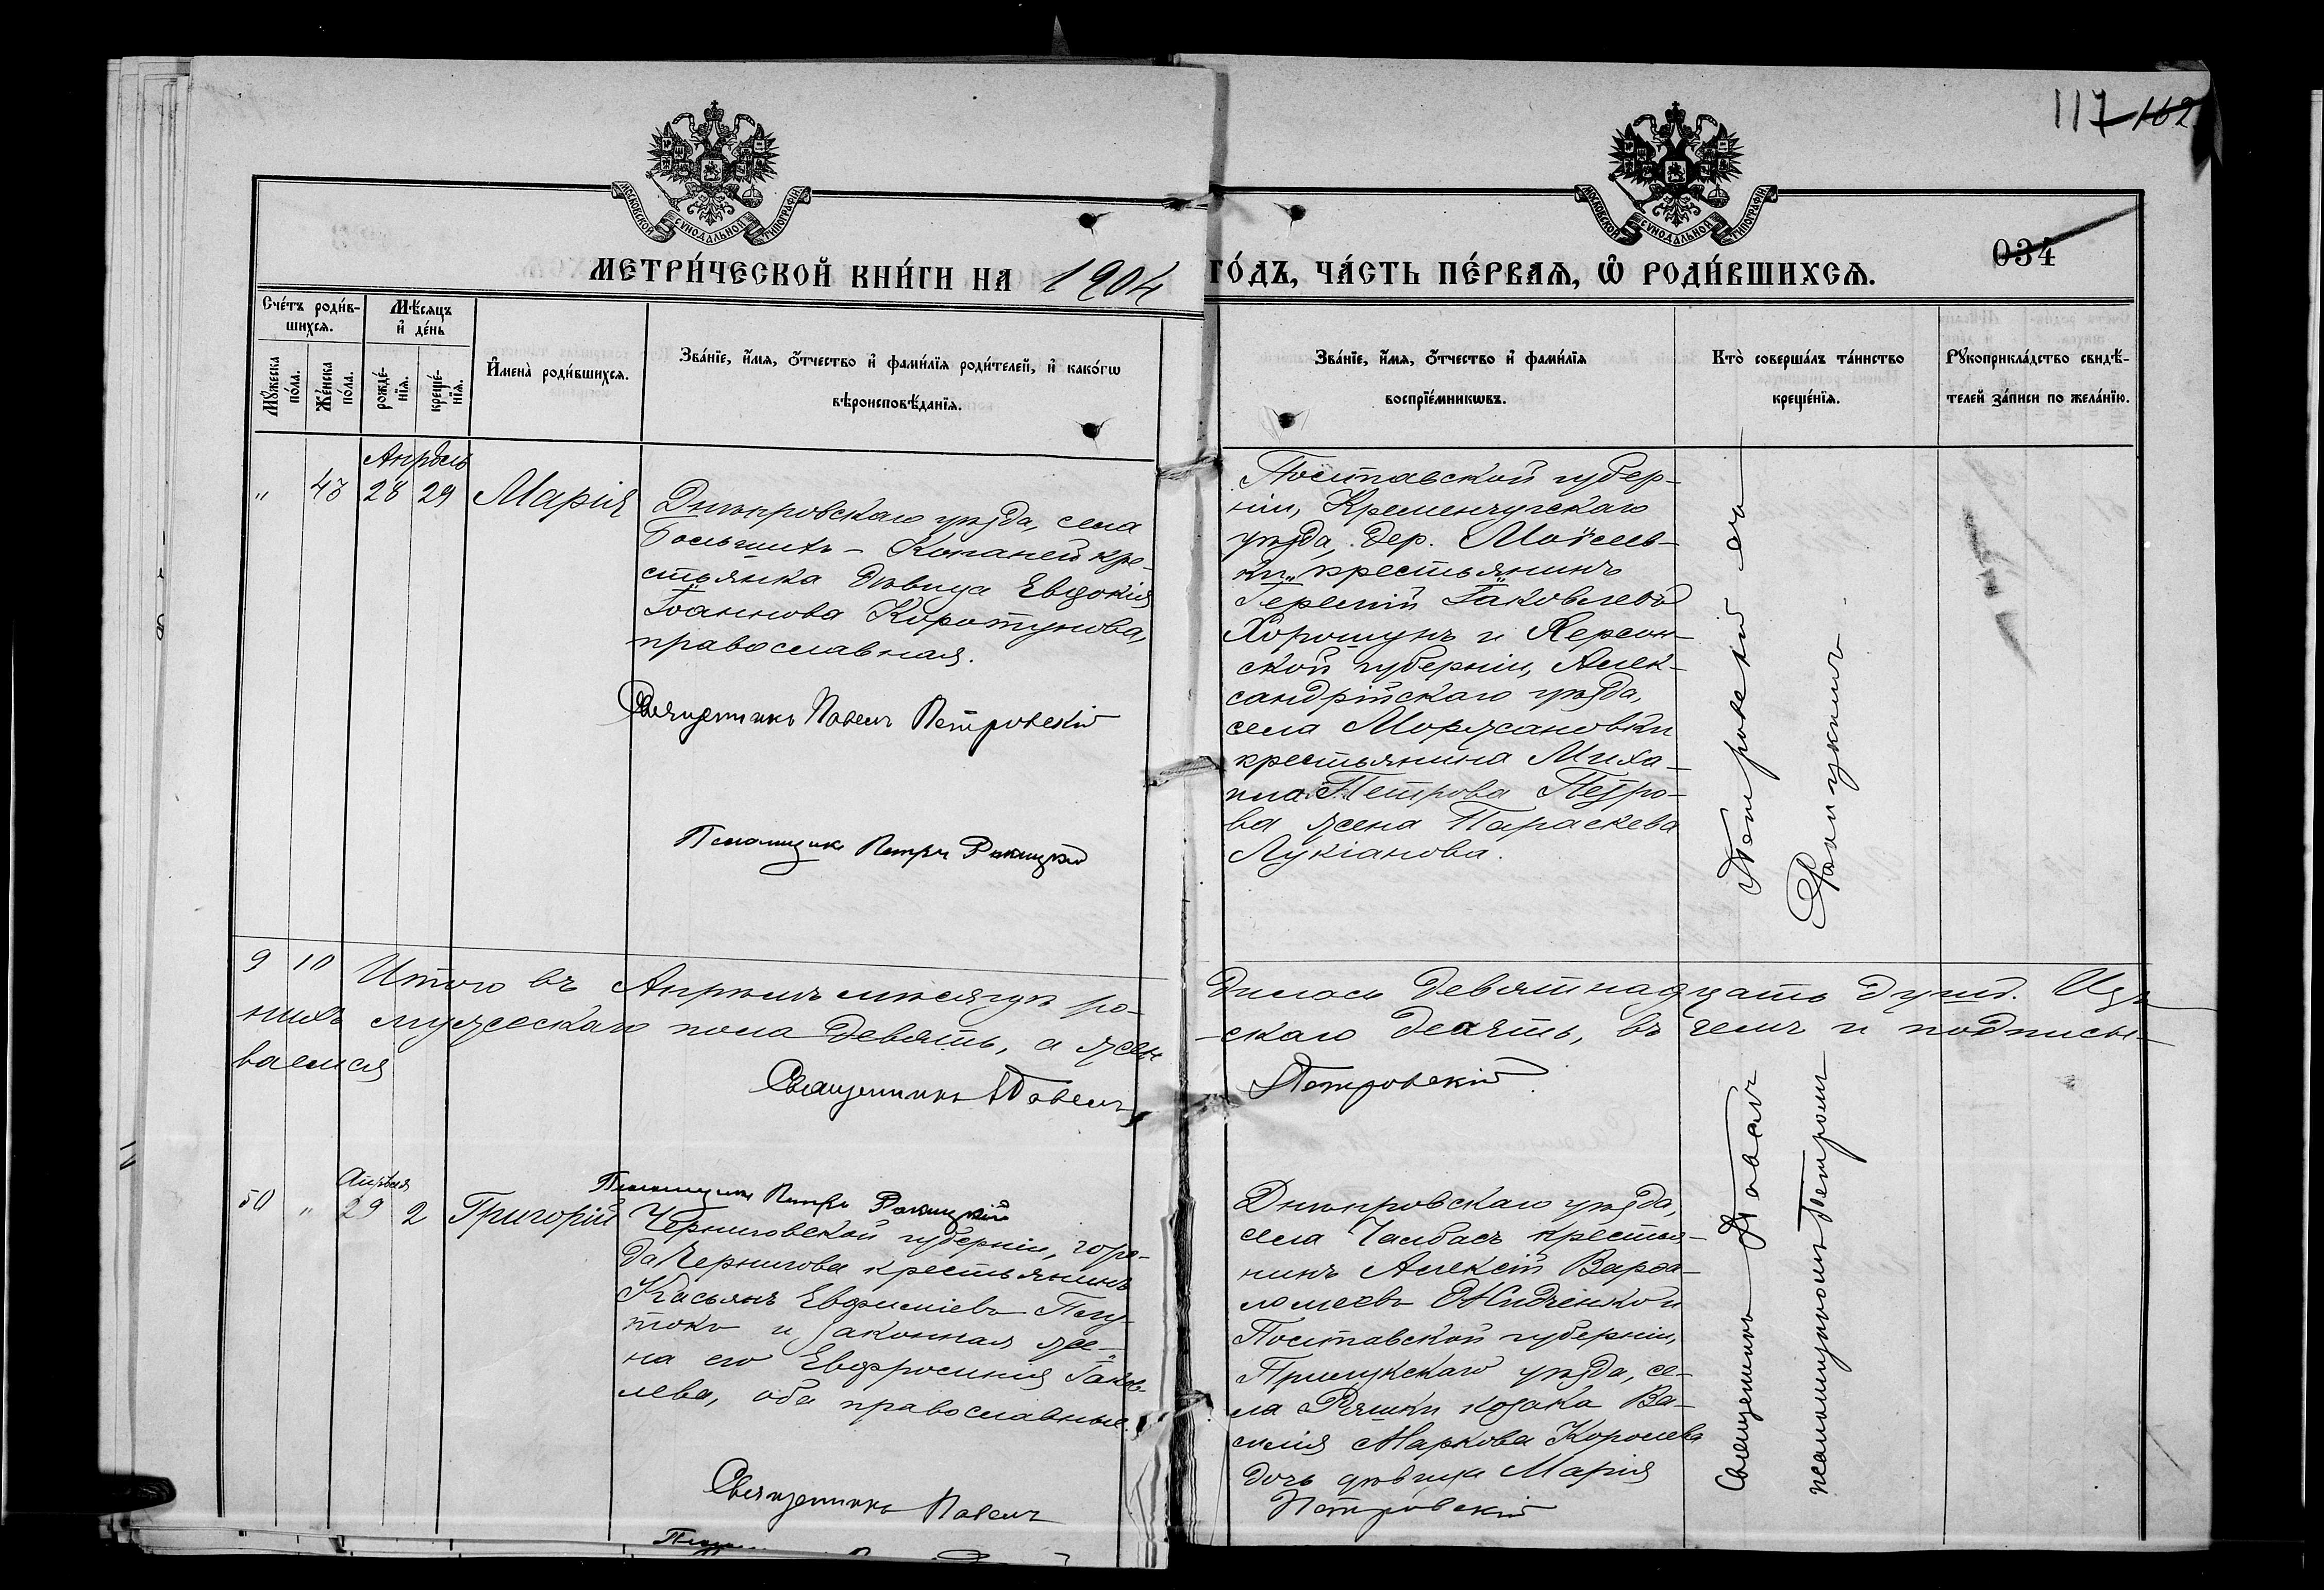 117 162
МОСКОВСКОЙ СУНОДАЛЬНОЙ ТИПОГРАФІИ
МОСКОВСКОЙ СУНОДАЛЬНОЙ ТИПОГРАФІИ
034
МЕТРИ́ЧЕСКОЙ КНИ́ГИ НА 1904 ГО́ДЪ, ЧА́СТЬ ПЕ́РВАѦ, Ѡ҆ РОДИ́ВШИХСѦ.
Сче́тъ роди́в-
шихсѧ.
Мѣ́сѧцъ
и҆ де́нь
Мꙋ́жеска
по́ла.
Же́нска
по́ла.
рожде́-
нїѧ.
креще́-
нїѧ.
И҆мена̀ роди́вшихсѧ.
Зва́нїе, и҆́мѧ, ѻ҆́тчество и҆ фами́лїѧ роди́телей, и҆ како́гѡ
вѣроисповѣ́данїѧ.
Зва́нїе, и҆́мѧ, ѻ҆́тчество и҆ фами́лїѧ
воспрїе́мникѡвъ.
Кто̀ соверша́лъ та́инство
креще́нїѧ.
Рꙋкоприкла́дство свидѣ́-
телей за́писи по жела́нїю.
Апрѣль
" 43 28 29 Марія
Днѣпровскаго уѣзда, села
Большихъ-Копаней кре-
стьянка дѣвица Евдокія
Іоаннова Коротунова,
православная.
Священникъ Павелъ Петровскій
Псаломщикъ Петръ Ракицкій
Полтавской губер-
ніи, Кременчугскаго
уѣзда, дер. Моисеев-
ки крестьянинъ
Іеремій Іаковлевъ
Хорошунъ и Херсон-
ской губерніи, Алек-
сандрійскаго уѣзда,
села
крестьянина Миха-
ила Петрова Петро-
ва жена Параскева
Лукіанова.
Петровскій съ
Ракицкимъ
9 10 Итого въ Апрѣлѣ мѣсяцѣ ро- дилось девятнадцать душъ. Изъ
нихъ мужескаго пола девять, а жен -скаго десять, въ чемъ и подписы-
ваемся
Священникъ Павелъ Петровскій
Псаломщикъ Петръ Ракицкій
Апрѣля
50 " 29 2 Григорій
Черниговской губерніи, горо-
да Чернигова крестьянинъ
Касьянъ Евфиміевъ
и законная же-
на его Евфросинія Іаков-
лева, оба православные.
Священникъ Павелъ Петровскій
Днѣпровскаго уѣзда,
села Чалбасъ крестья-
нинъ Алексій Варѳо-
ломеевъ и
Полтавской губерніи,
Прилукскаго уѣзда, се-
ла Ряшки козака Ва-
силія Маркова Королева
дочь дѣвица Марія
Священникъ Павелъ
псаломщикомъ Петромъ